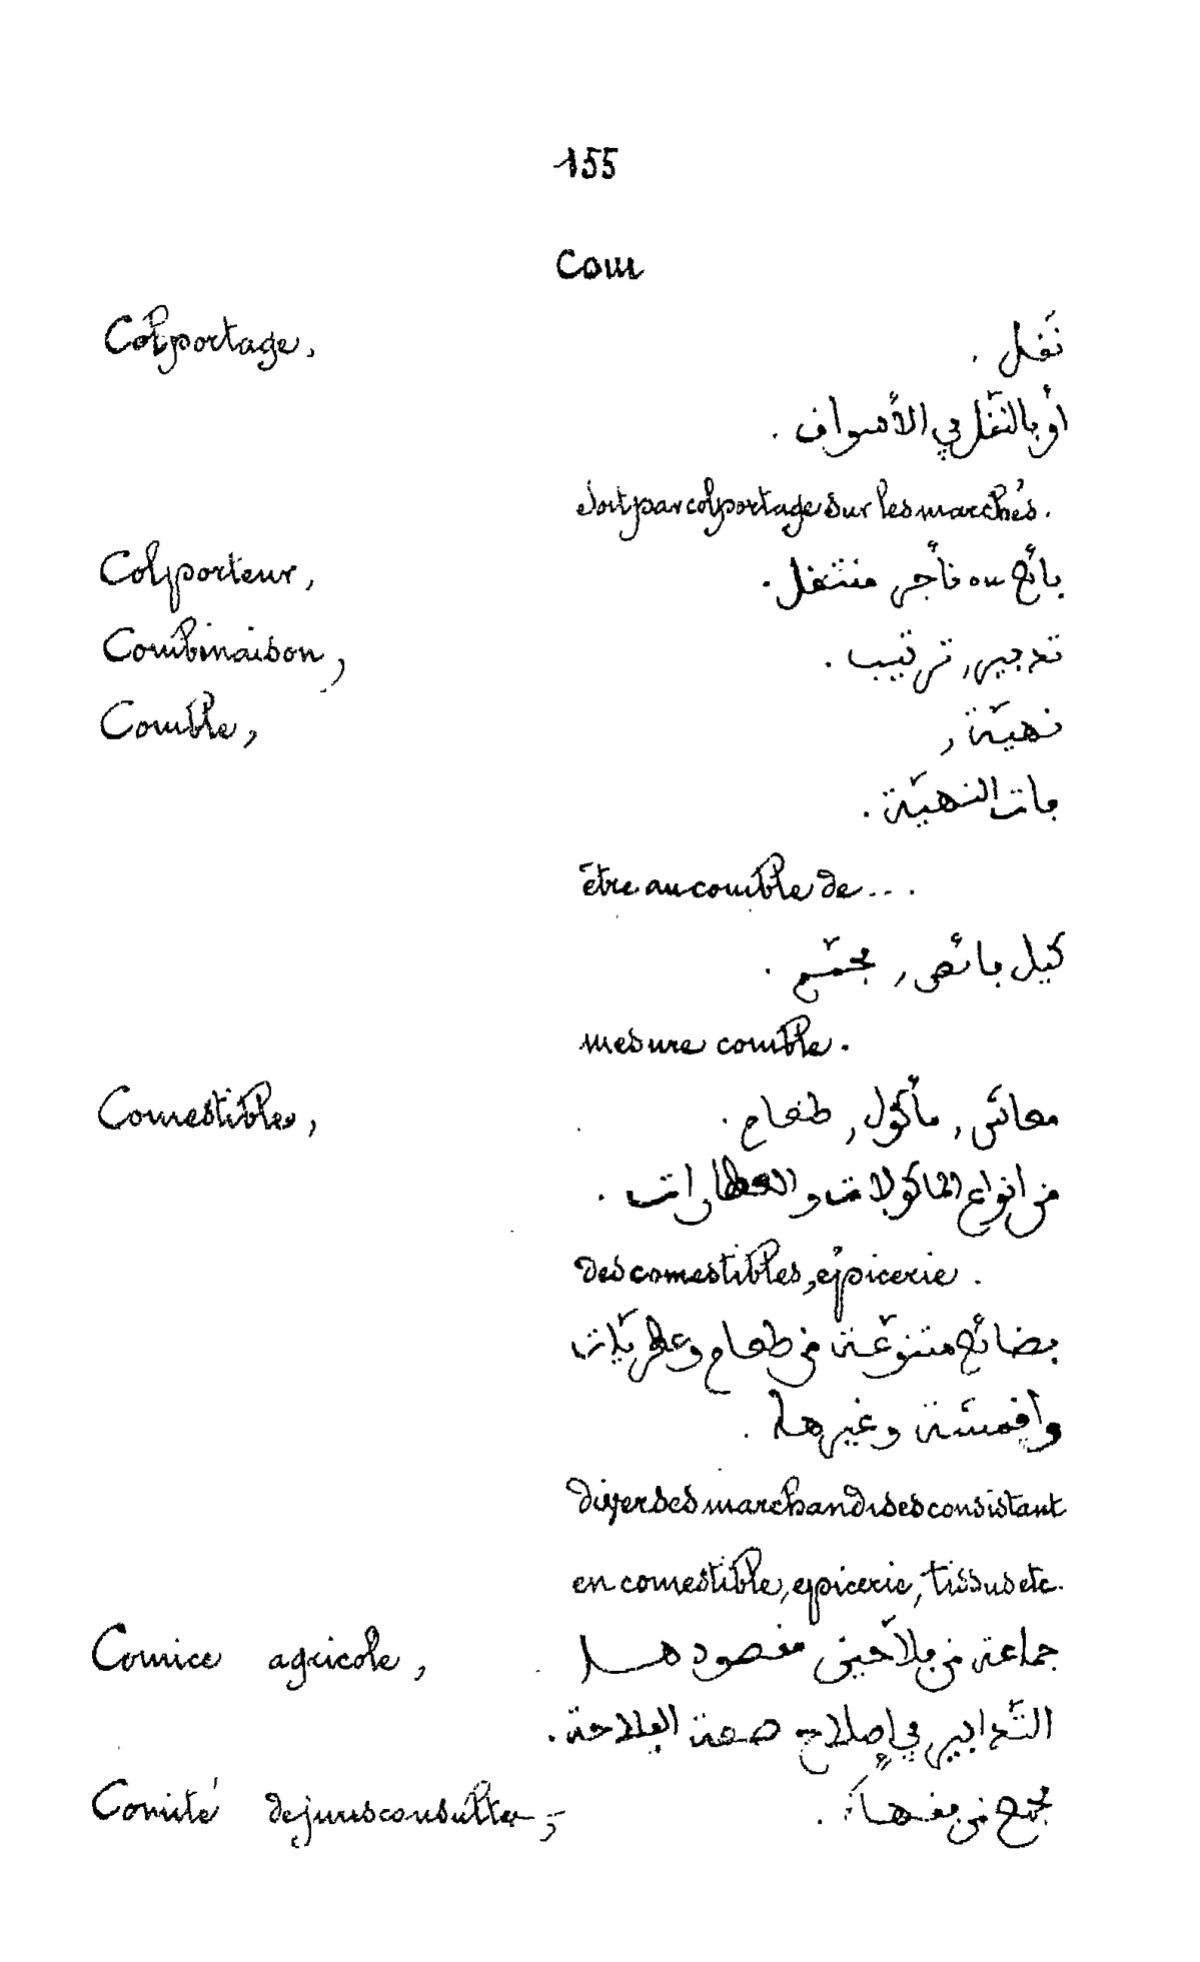 155
Com
Colportage, نَقل .
أو بالنّقل في الأسواق .
soit par colportage sur les marchés.
Colporteur, بائع ou تاجر متنقل .
Combinaison, تدبير, ترتيب .
Comble, نهيّة,
بات النهيّة .
être au comble de ...
كيل بائص, مجمّع .
mesure comble .
Comestibles, معاش, مأكول, طعام .
من انواع الماكولات والعطارات .
des comestibles, épicerie .
بضائع متنوّعة من طعام وعطريّات
واقمشة وغيرها .
diverses marchandises consistant
en comestible, epicerie, tissus etc.
Comice agricole, جماعة من فلاّحين مقصودها
التّدابير في إصلاح صنعة الفلاحة .
Comité de jurisconsultes, مجمع من فقهاء .